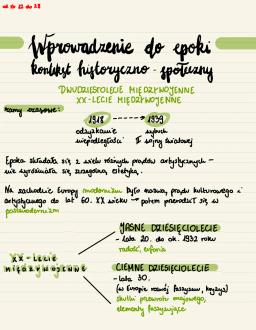 Wprowadzenie do epoki
kontekst historyczno-społeczny
DWUDZIESTOLECIE MIĘDZYWOJENNE
XX-LECIE MIĘDZYWOJENNE
ramy czasowe:
1918 ----> 1939
odzyskanie wybuch
niepodległości II wojny światowej
Epoka składała się z wielu różnych prądów artystycznych –
nie wyróżniała się szczególną estetyką.
Na zachodzie Europy modernizm było nazwą prądu kulturowego i
artystycznego do lat 60. XX wieku → potem przerodził się w
postmodernizm
JASNE DZIESIĘCIOLECIE
- lata 20. do ok. 1932 roku
radość, euforia
XX-LECIE
MIĘDZYWOJENNE
CIEMNE DZIESIĘCIOLECIE
- lata 30.
(w Europie rozwój faszyzmu, kryzys)
skutki przewrotu majowego,
elementy faszyzujące